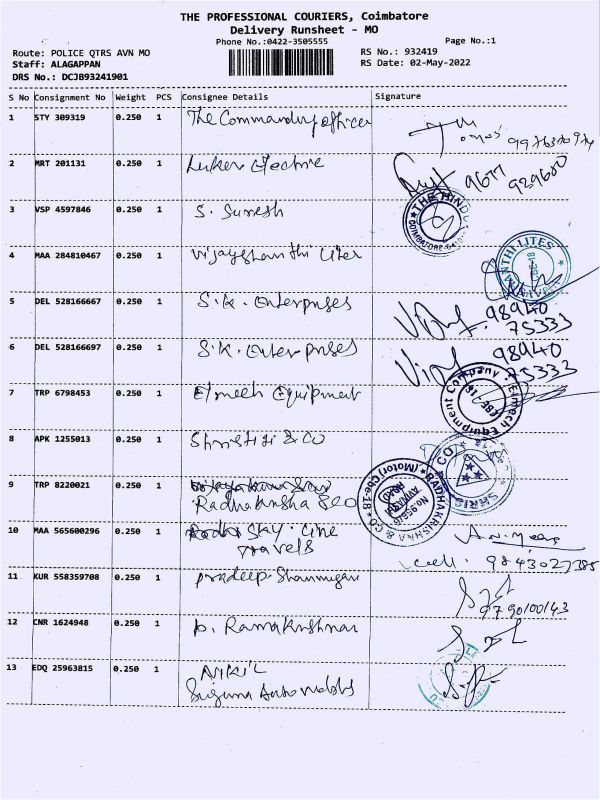 THE PROFESSIONAL COURIERS, Coimbatore
Delivery Runsheet - MO
Phone No.:0422-3505555
Page No.:1
Route: POLICE QTRS AVN MO
RS No.: 932419
Staff: ALAGAPPAN
RS Date: 02-May-2022
DRS No.: DCJB93241901
S No Consignment No Weight PCS Consignee Details Signature
1 STY 309319 0.250 1 The Commanding officer
2 MRT 201131 0.250 1
9677 929680
3 VSP 4597846 0.250 1 S. Suresh
THE HINDU
4 MAA 284810467 0.250 1 Vijayshanthi
5 DEL 528166667 0.250 1 S.K. Enterprises
98940
75333
6 DEL 528166697 0.250 1 S.K. Enterprises
98940
75333
7 TRP 6798453 0.250 1 Elmech Equipment
Elmech Equipment Company
8 APK 1255013 0.250 1 & Co
9 TRP 8220021 0.250 1
RADHAKRISHNA & CO (Motor) Cbe-18
10 MAA 565600296 0.250 1 Cine
Travels
cell: 9843027385
11 KUR 558359708 0.250 1 pradeep Shanmugam
9790100143
12 CNR 1624948 0.250 1 Ramakrishnan
13 EDQ 25963815 0.250 1
Suguna Automobiles